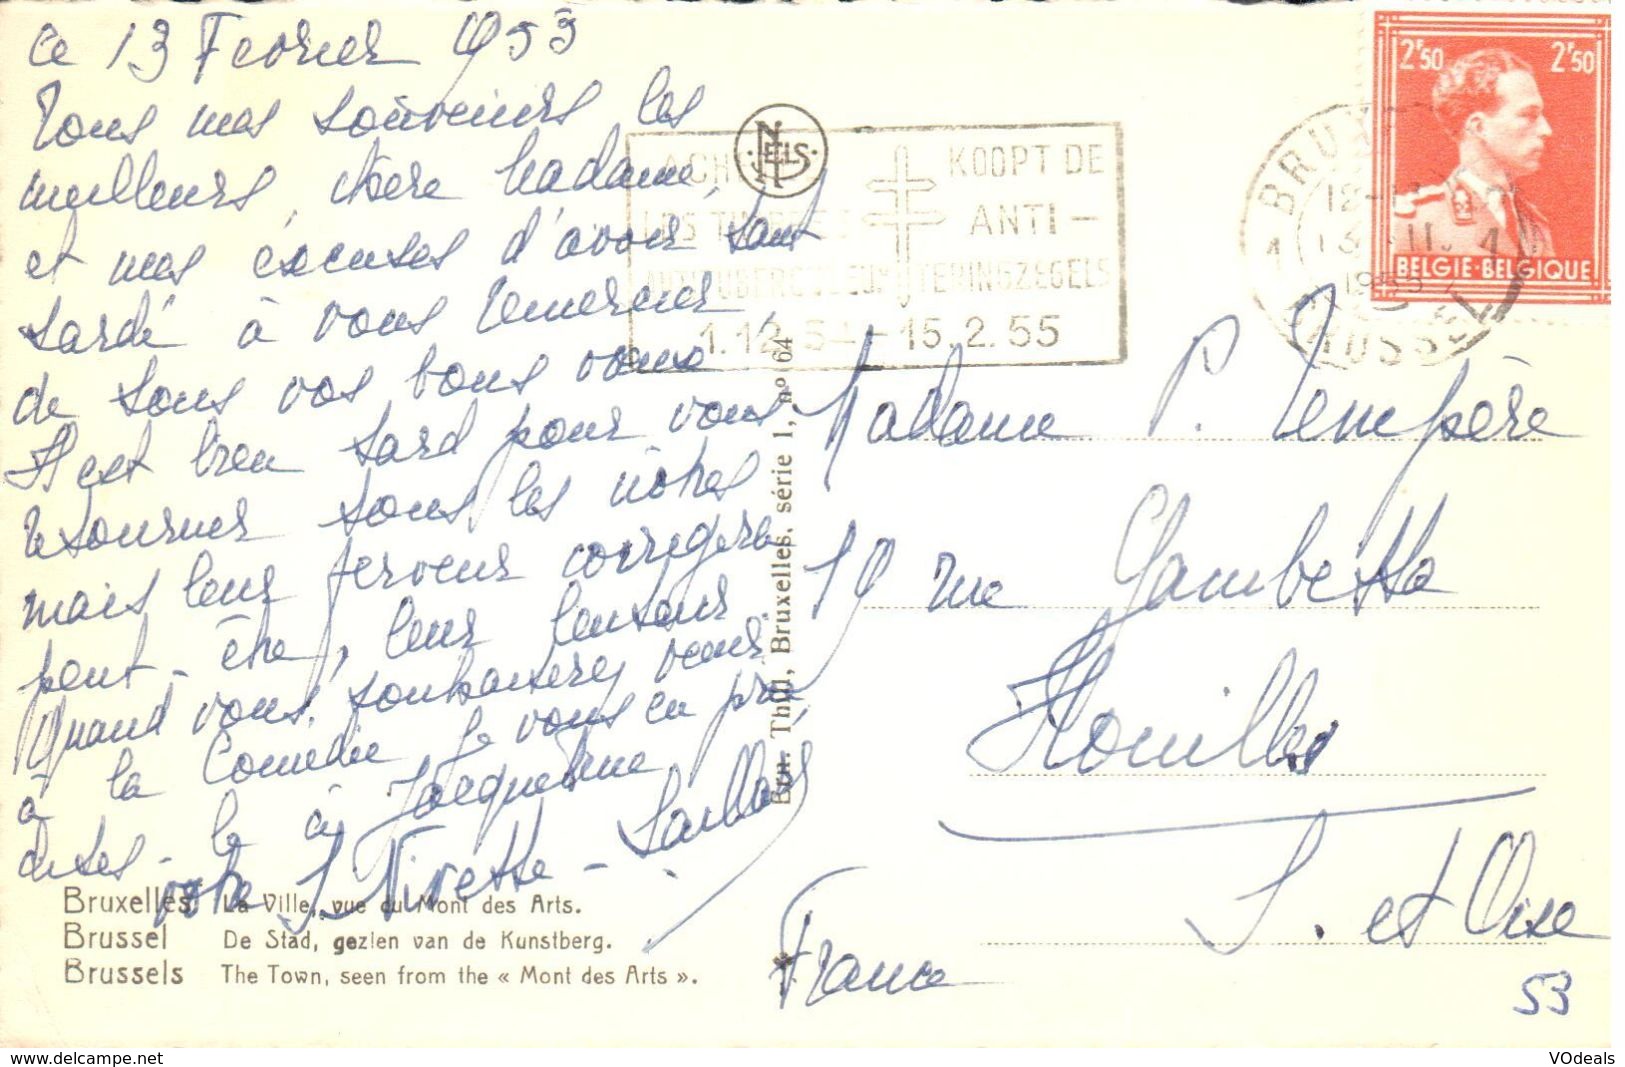 ce 13 Février 1955
Tous mes souvenirs les
meilleurs, chère Madame,
et mes excuses d'avoir tant
tardé à vous remercier,
de tous vos bons vœux
Il est bien tard pour vous
retourner tous les nôtres
mais leur ferveur corrigera
peut-être, leur lenteur
Quand vous souhaiterez venir
à la Comédie je vous en prie
dites-le à Jacqueline
votre J Nivette-Saillard
NELS
ACHETEZ
LES TIMBRES
ANTITUBERCULEUX
KOOPT DE
ANTI-
TERINGZEGELS
1.12.54-15.2.55
BRUXELLES
1 1
12-13
13 II
1955
BRUSSEL
2F50 2F50
BELGIE-BELGIQUE
Ern. Thill, Bruxelles, série 1, nº 64
Madame P. Tempère
19 rue Gambetta
Houilles
S. et Oise
France
53
Bruxelles La Ville, vue du Mont des Arts.
Brussel De Stad, gezien van de Kunstberg.
Brussels The Town, seen from the « Mont des Arts ».
www.delcampe.net VOdeals